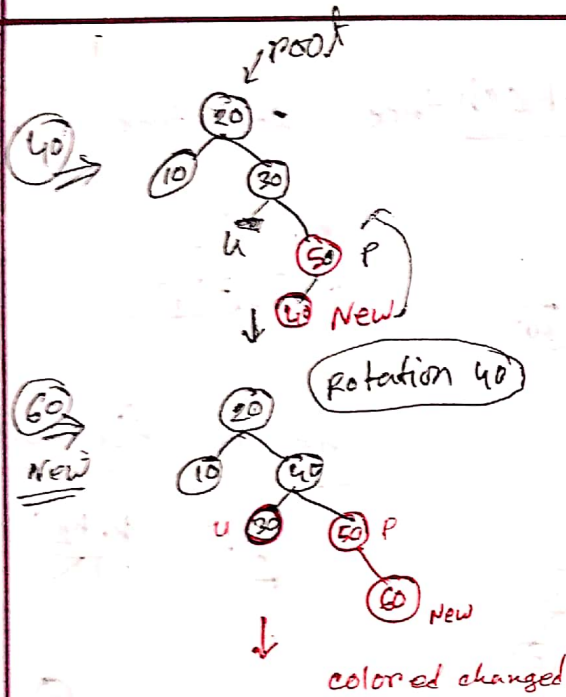 root
20
40
10
30
u
50 P
40 New
Rotation 40
60
New
20
10
40
u 30
50 P
60 New
colored changed